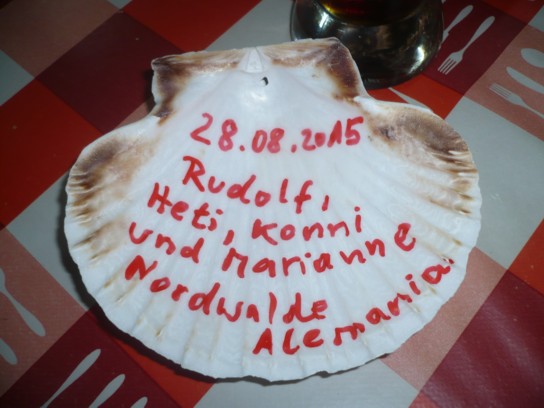 28.08.2015
Rudolf,
Heti, Konni
und Marianne
Nordwalde
Alemania